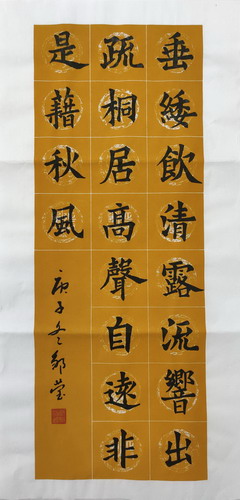 垂緌飲清露流響出
疏桐居髙聲自遠非
是藉秋風
庚子冬邹莹